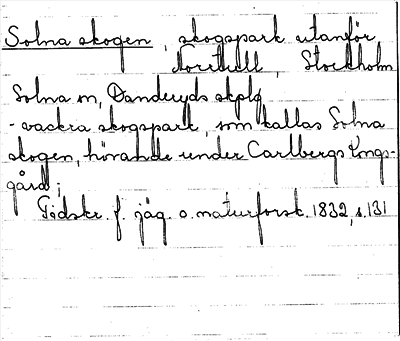 Solna skogen, skogspark utanför
Norrtull, Stockholm
Solna sn, Danderyds skplg
- vackra skogspark, som kallas Solna
skogen, hörande under Carlbergs Kongs-
gård;
Tidskr. f. jäg. o. naturforsk. 1832, s. 131